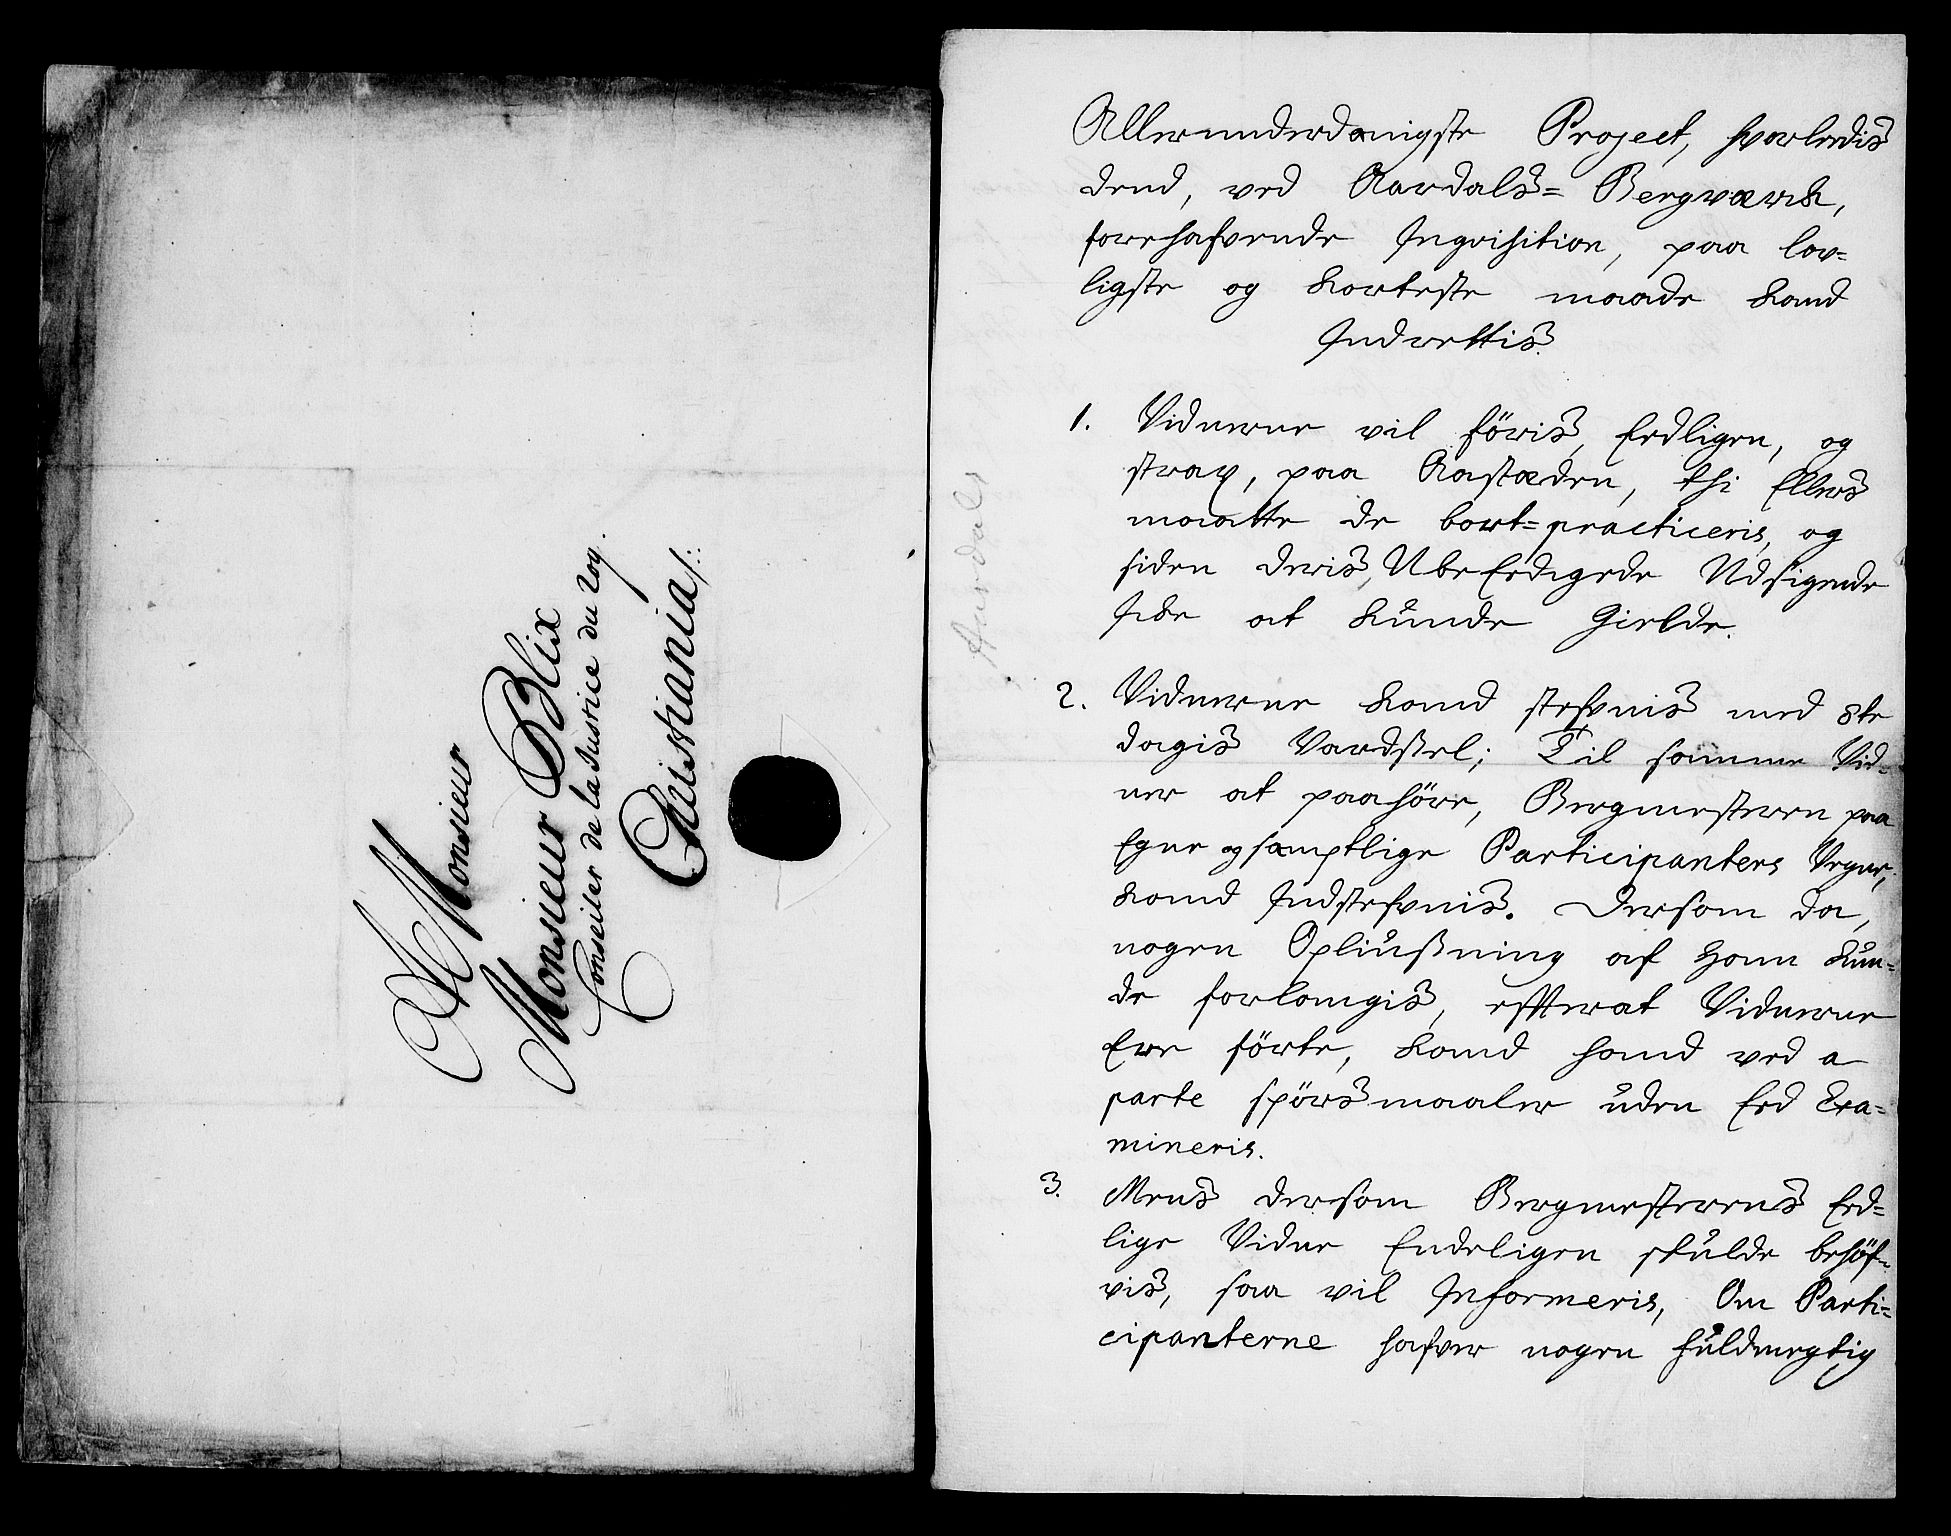 A Monsieur
Monsieur Blix
Conseiler de la Justice du Roy.
Christiania /:
Aardals
Allerunderdanigste Project, hvorledis
dend, ved Aardals= Bergværck,
forehafvende Inqvisition, paa lov=
ligste og korteste maade kand
Indrettis.
1. Vidnerne vil föris, Eedligen, og
strax, paa Aastæden, thi Ellers
maatte de bort=practiceris, og
siden deris, UbeEedigede Udsigende
icke at kunde Gielde.
2. Vidnerne kand stefvnis med 8te
dagis Vardsel; Til samme Vid=
ner at paahöre, Bergmesteren paa
Egne og samptlige Participanters Vegne,
kand Indstefvnis. Dersom da,
nogen Opliusning af Ham kun=
de forlangis, effterat Vidnerne
Ere förte, kand hand ved a
parte spörsmaaler uden Eed Exa=
mineris.
3. Mens dersom Bergmesterens Eed=
lige Vidne Endeligen skulde behöf=
vis, saa vil Informeris, Om Parti=
cipanterne hafver nogen fuldmegtig